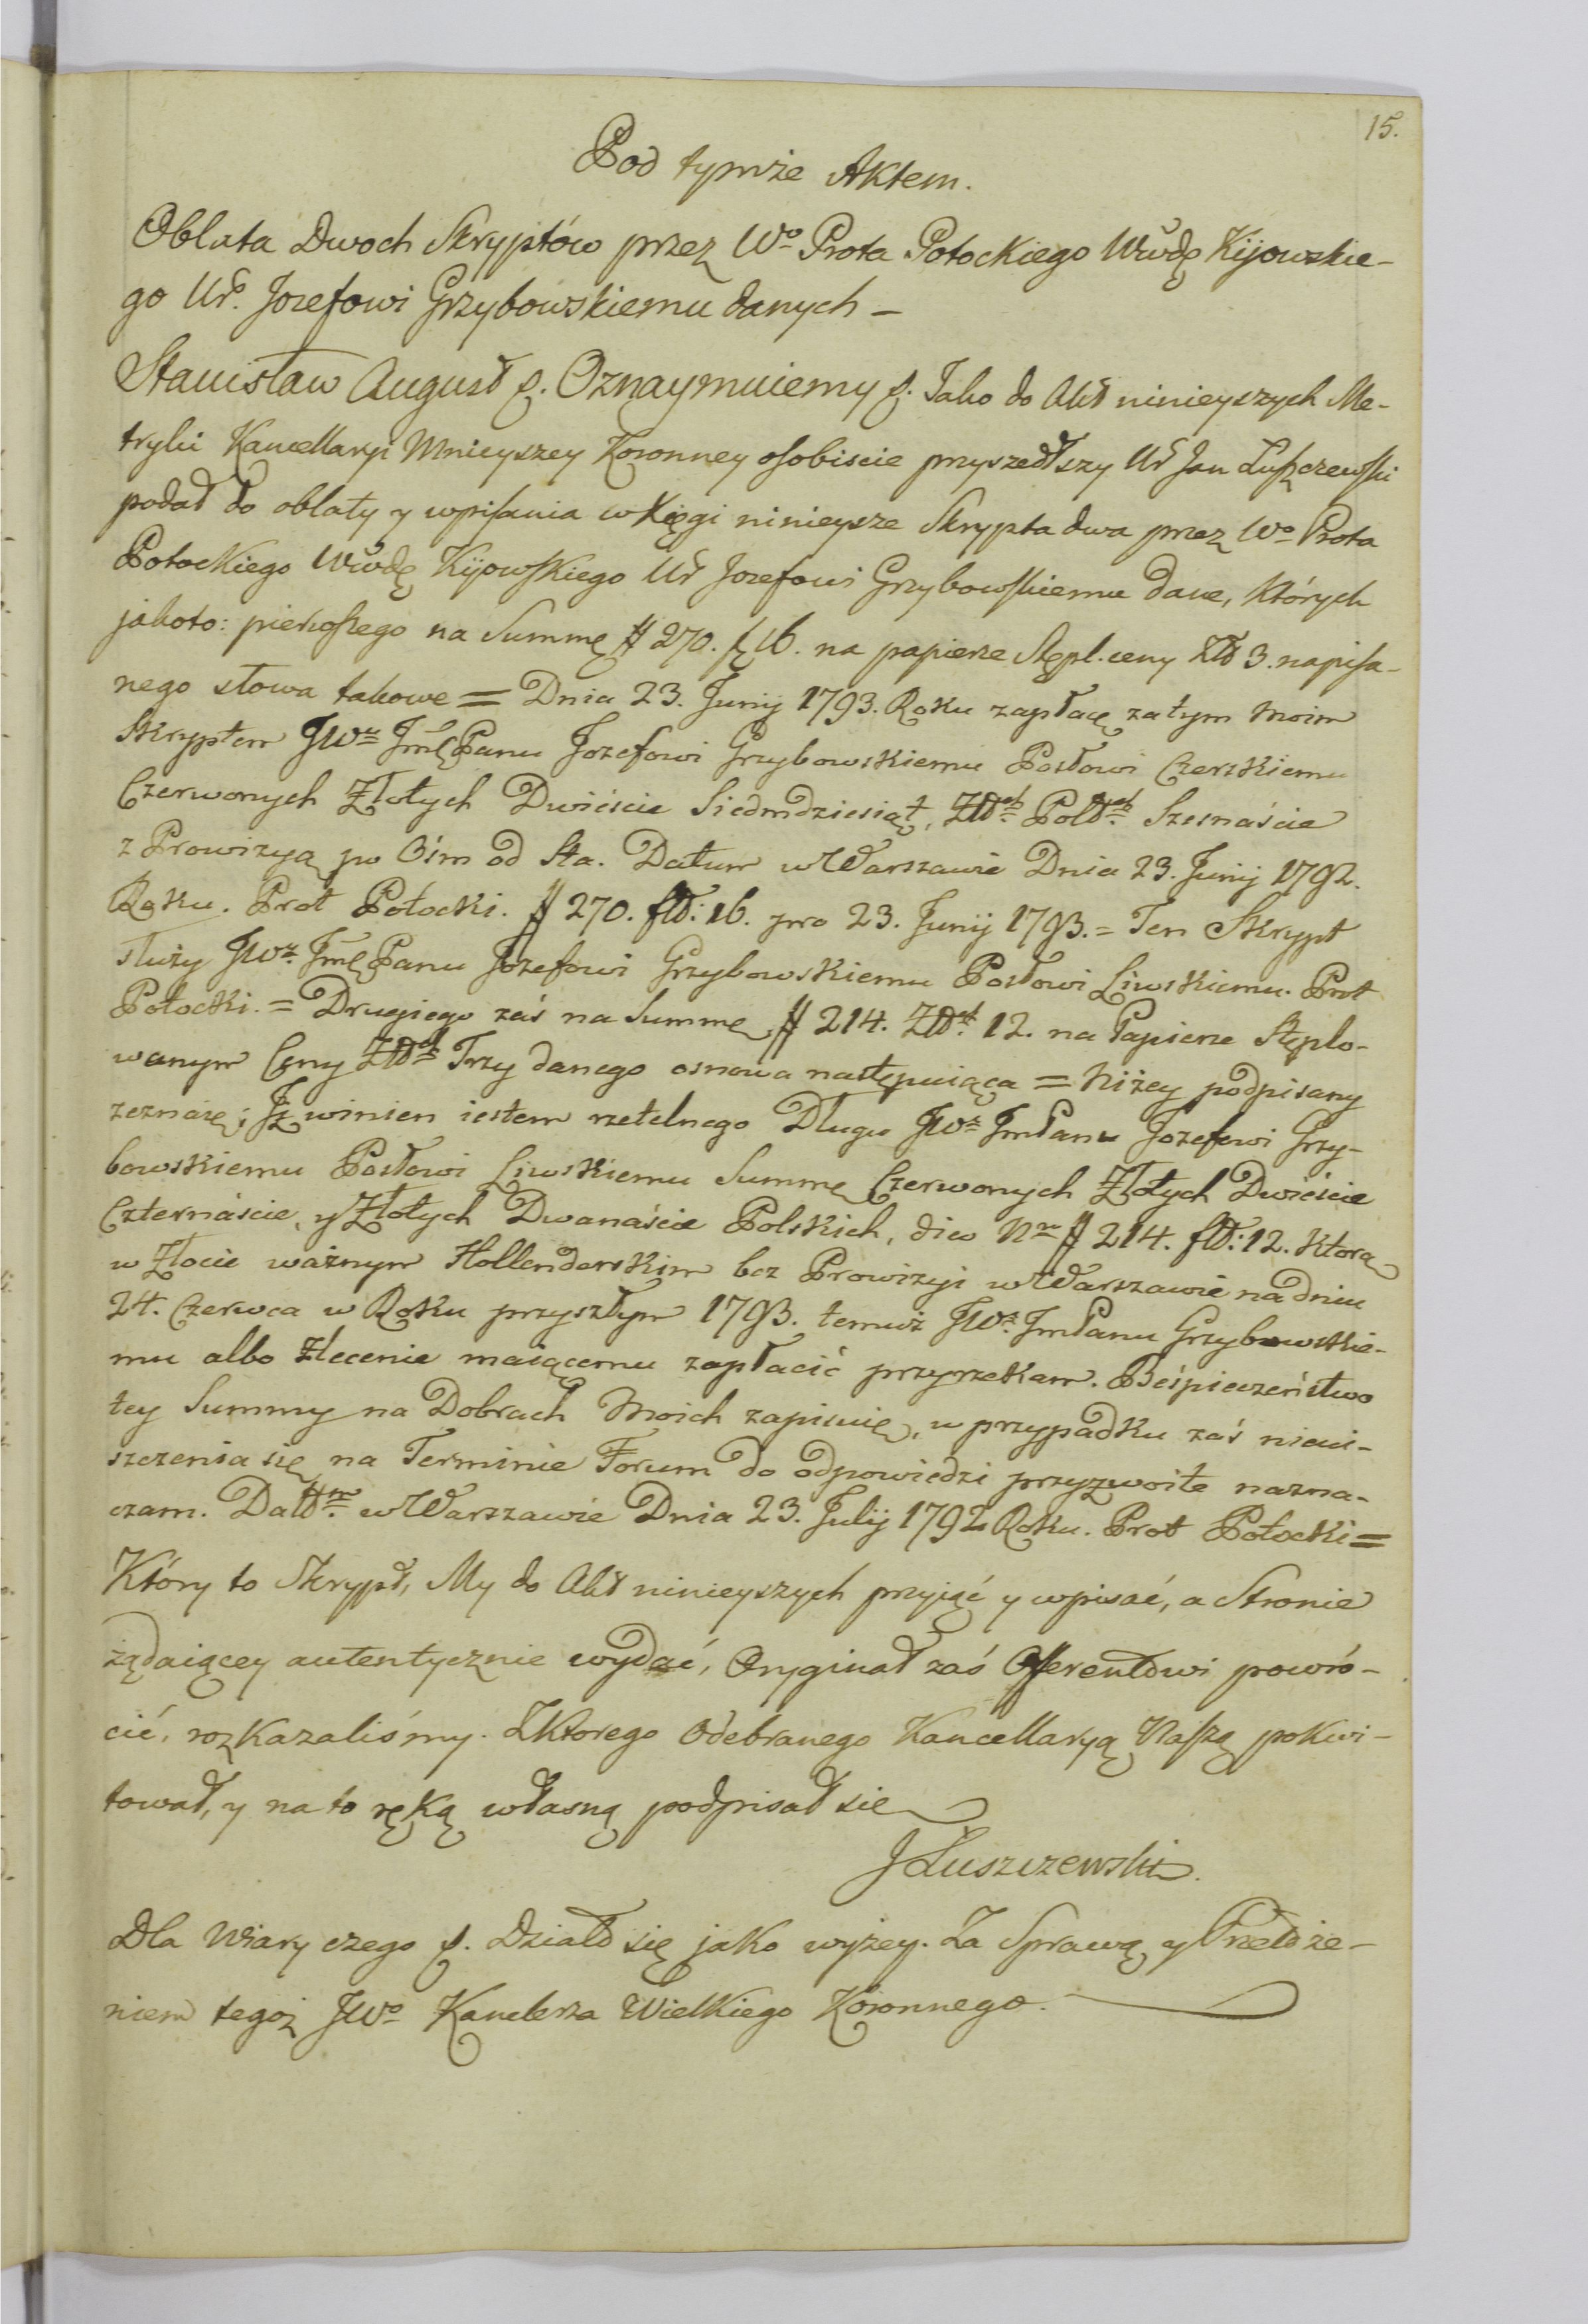 15.
Pod tymże Aktem.
Oblata Dwoch Skryptów przez Wo Prota Potockiego Wwdę Kijowskie-
go Ur. Jozefowi Grzybowskiemu danych –
Stanisław August &. Oznaymuiemy &. Iako do Akt ninieyszych Me-
tryki Kancellaryi Mnieyszey Koronney osobiscie przyszedłszy Ur Jan Łuszczewski
podał do oblaty y wpisania w Xięgi ninieysze Skrypta dwa przez Wo Prota
Potockiego Wwdę Kijowskiego Ur Jozefowi Grzybowskiemu dane, których
jakoto: pierwszego na Summę # 270. f 16. na papierze Stępl. ceny Zł 3. napisa-
nego słowa takowe = Dnia 23. Junij 1793. Roku zapłacę za tym moim
Skryptem JWu Jmę Panu Jozefowi Grzybowskiemu Posłowi Czerskiemu
Czerwonych Złotych Dwieście Siedmdziesiąt, Złłch Polłch Szesnaście
z Prowizyą po Ośm od Sta. Datum w Warszawie Dnia 23. Junij 1792.
Roku. Prot Potocki. # 270. fłł: 16. pro 23. Junij 1793. = Ten Skrypt
służy JWu. Jmę Panu Jozefowi Grzybowskiemu Posłowi Liwskiemu. Prot
Potocki. = Drugiego zaś na Summę # 214. Złłch 12. na Papierze Stęplo-
wanym Ceny Złłch Trzy danego osnowa następuiąca = Niżey podpisany
zeznaię; Iż winien iestem rzetelnego Długu JWu JmPanu Jozefowi Grzy-
bowskiemu Posłowi Liwskiemu Summę Czerwonych Złotych Dwieście
Czternaście, y Złotych Dwanaście Polskich, dico Nro # 214. fłł: 12. ktorą
w Złocie ważnym Hollenderskim bez Prowizyi w Warszawie na dniu
24. Czerwca w Roku przyszłym 1793. temuż JWu. JmPanu Grzybowskie-
mu albo Zlecenie maiącemu zapłacić przyrzekam. Beśpieczeństwo
tey Summy na Dobrach Moich zapisuię, w przypadku zaś nieui-
szczenia się na Terminie Forum do odpowiedzi przyzwoite nazna-
czam. Dattm. w Warszawie Dnia 23. Julij 1792 Roku. Prot Potocki =
Który to Skrypt, My do Akt ninieyszych przyiąć y wpisać, a Stronie
żądaiącey autentycznie wydać, Oryginał zaś Offerentowi powró-
cić, rozkazaliśmy. Z ktorego odebranego Kancellaryą Naszą pokwi-
tował, y na to ręką własną podpisał się
J Łuszczewski.
Dla Wiary czego &. Działo się jako wyżey. Za Sprawą y Przełoże-
niem tegoż JWo Kanclerza Wielkiego Koronnego.